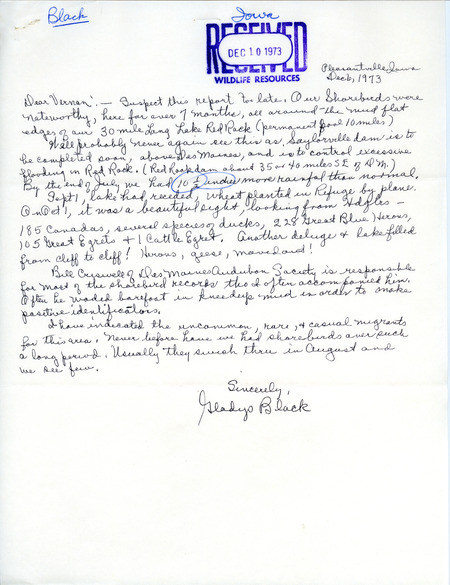 Black
Iowa
RECEIVED
DEC 10 1973
WILDLIFE RESOURCES
Pleasantville, Iowa
Dec 6, 1973
Dear Vernon: — Suspect this report to late. Our Shorebirds were
noteworthy, here for over 7 months, all around the mud flat
edges of our 30 mile long Lake Red Rock (permanent pool 10 miles)
We'll probably never again see this as Saylorville dam is to
be completed soon, above Des Moines, and is to control excessive
flooding in Red Rock. (Red Rock dam about 35 or 40 miles SE of D.M.)
By the end of July we had 10 inches more rainfall than normal.
Sept 1, lake had receded, wheat planted in Refuge by plane.
On Oct 1, it was a beautiful sight, looking from Hdqtrs —
185 Canadas, several species of ducks, 228 Great Blue Herons,
105 Great Egrets & 1 Cattle Egret. Another deluge & lake filled
from cliff to cliff! Herons, geese, moved out!
Bill Criswell of Des Moines Audubon Society is responsible
for most of the shorebird records tho I often accompanied him.
Often he waded barefoot in knee deep mud in order to make
positive identifications.
I have indicated the uncommon, rare, & casual migrants
for this area. Never before have we had shorebirds over such
a long period. Usually they swish thru in August and
we see few.
Sincerely,
Gladys Black